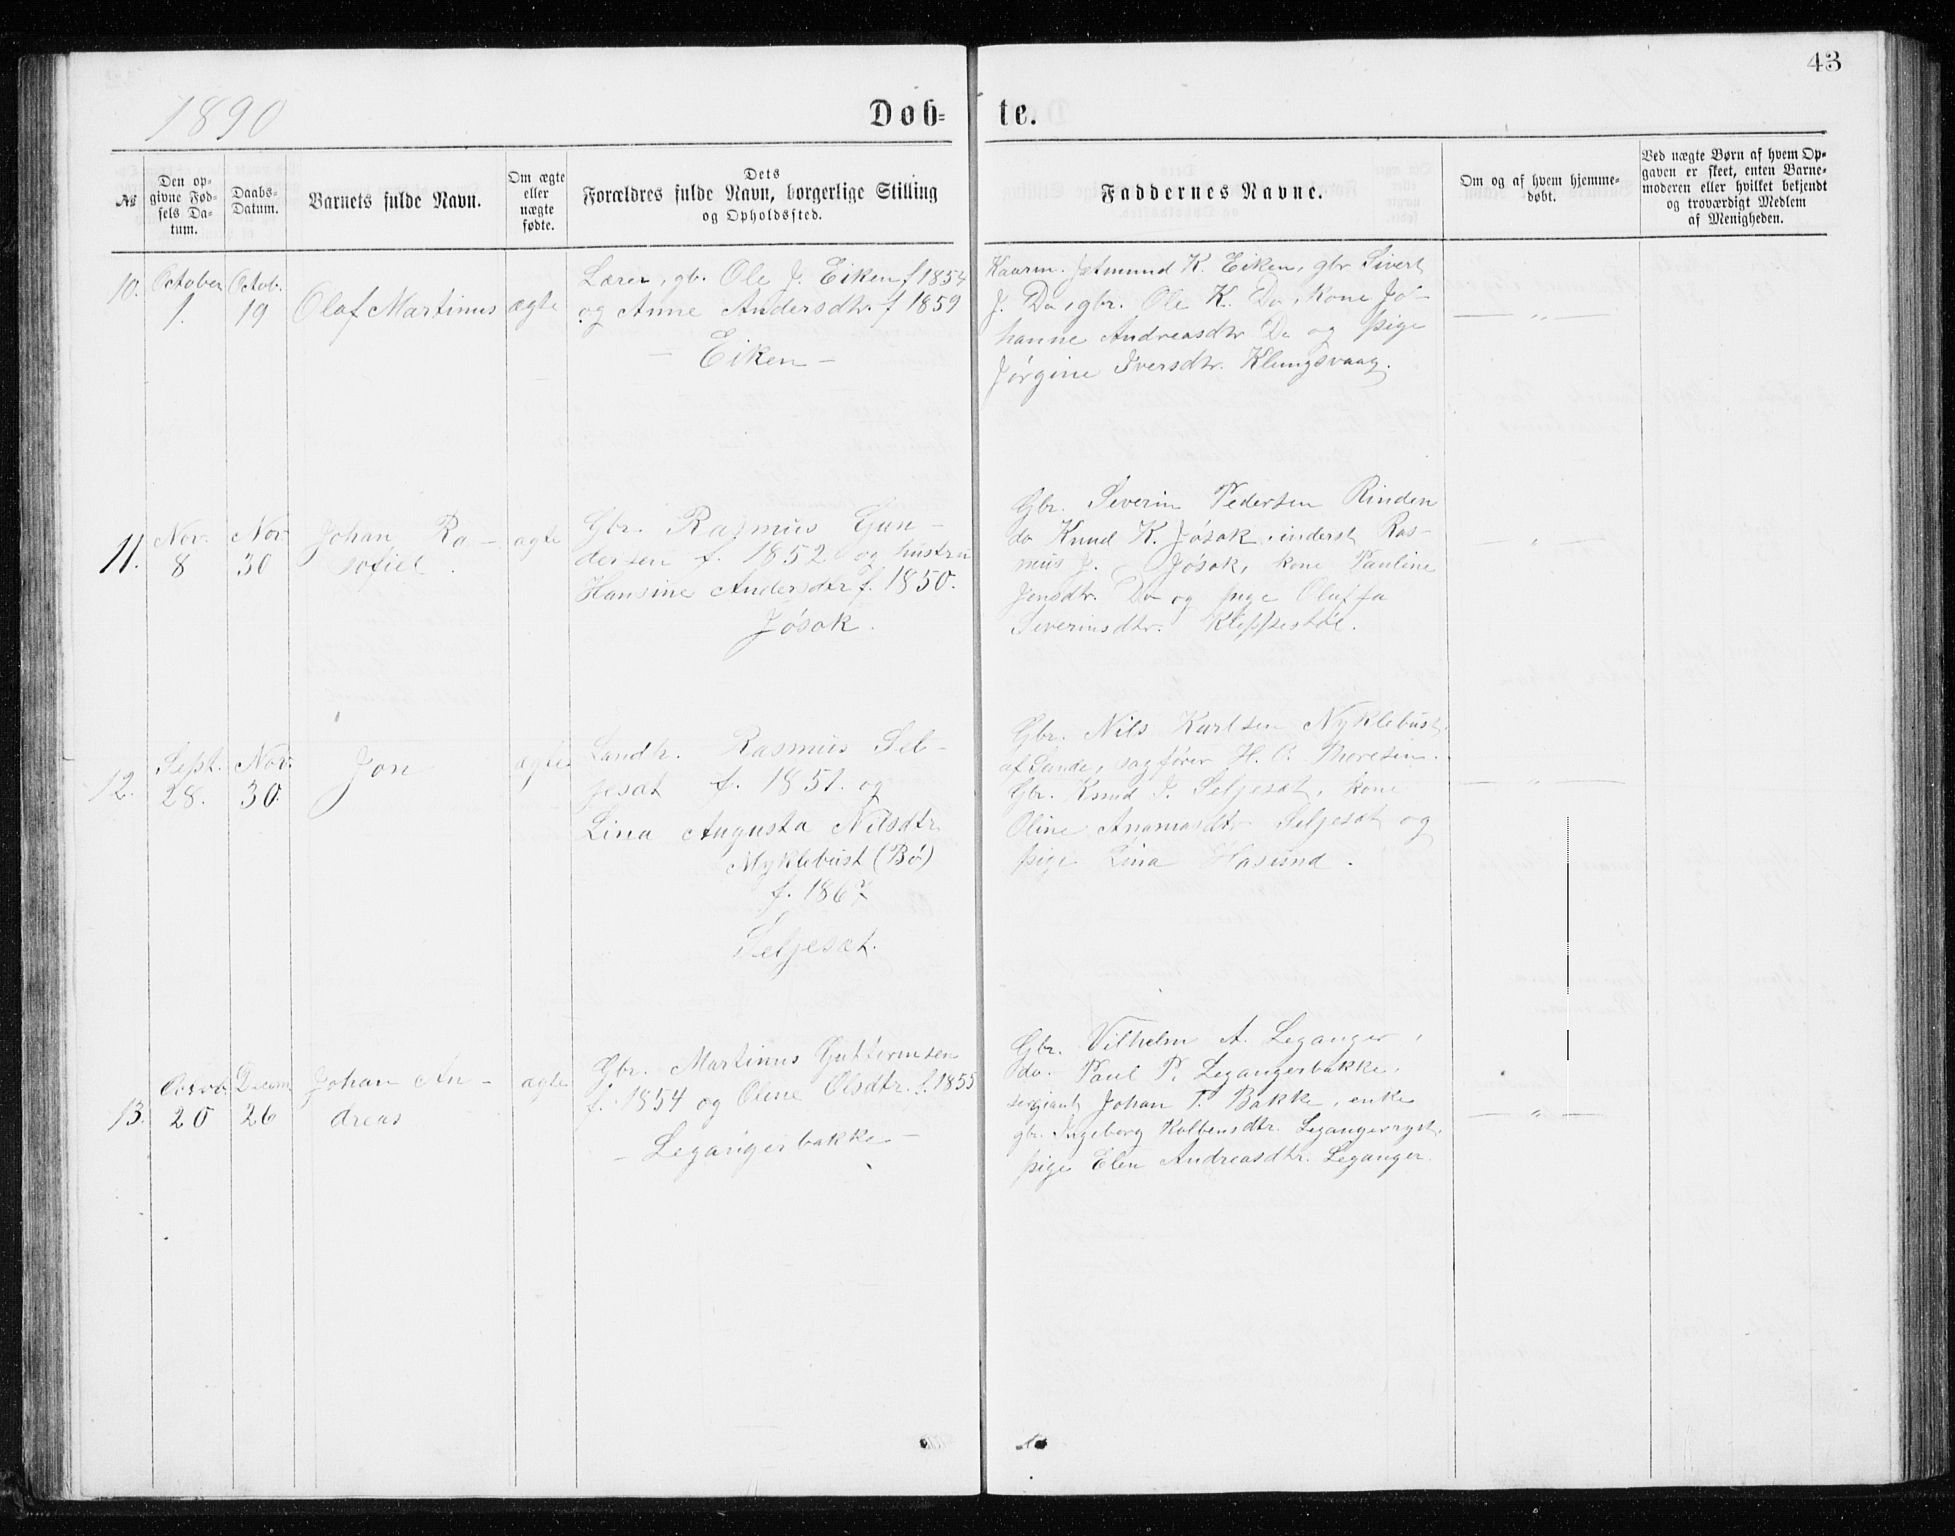 43
1890
Döb-
te.
№
Den op-
givne Fød-
sels Da-
tum.
Daabs-
Datum.
Barnets fulde Navn.
Om ægte
eller
uægte
fødte.
Dets
Forældres fulde Navn, borgerlige Stilling
og Opholdssted.
Faddernes Navne.
Om og af hvem hjemme-
døbt.
Ved uægte Børn af hvem Op-
gaven er skeet, enten Barne-
moderen eller hvilket bekjendt
og troværdigt Medlem
af Menigheden.
10.
October
1.
Octob.
19
Olaf Martinus
ægte
Lærer, gb. Ole J. Eiken f 1854
og Anne Andersdtr. f 1859
- Eiken -
Jetmund K. Eiken, gbr Sivert
J. Do, gbr. Ole K. Do, kone Jo-
hanne Andreasdtr Do og pige
Jørgine Iversdtr. Klungsvaag.
— " —
11.
Nov.
8
Nov.
30
Johan Ra-
sofiel.
ægte
Gbr. Rasmus Gun-
dersen f. 1852 og hustru
Hansine Andersdtr f. 1850.
Jøsok.
Gbr. Severin Pedersen Rinden
do Knud K. Jøsok, inderst Ras-
mus J. Jøsok, kone Pauline
Jensdtr. Do og pige Oluffa
Severinsdtr. Kleppestøl.
— " —
12.
Sept.
28.
Nov.
30.
Jon
ægte
Landh. Rasmus Sel-
jesæt f. 1851. og
Lina Augusta Nilsdtr.
Myklebust (Bø)
f. 1867
Seljesæt.
Gbr. Nils Karlsen Myklebust
af Sande, sagfører H. O. Thoresen.
Gbr. Knud J. Seljesæt, kone
Oline Seljesæt og
pige Lina Hasund.
— " —
13.
Octob.
20
Decem
26
Johan An-
dreas
ægte
Gbr. Martinus Guttormsen
f. 1854 og Oline Olsdtr. f. 1855
- Legangerbakke -
Gbr. Vilhelm A. Leganger,
do. Paul P. Legangerbakke,
sergiant Johan P. Bakke, enke
gbr. Ingeborg Kolbensdtr. Legangerryst,
pige Elen Andreasdtr. Leganger.
— " —